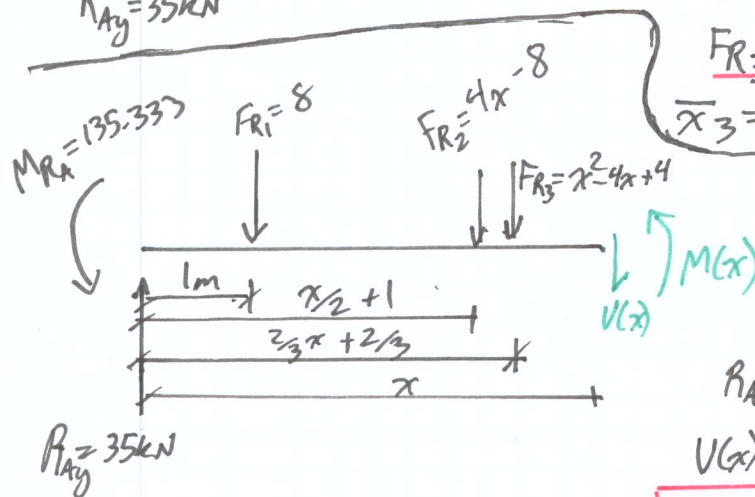 RAy=35kN
FR=
x̄3=
MRA=135.333
FR1=8
FR2=4x-8
FR3=x²-4x+4
1m
x/2 +1
2/3x +2/3
x
V(x)
M(x)
RAy=35kN
RA
V(x)